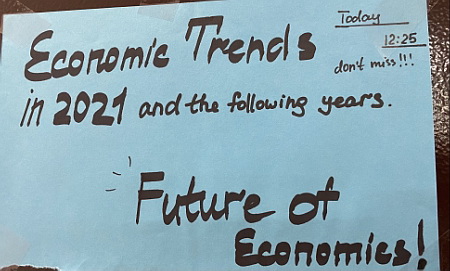 Economic Trends
Today
12:25
don't miss!!!
in 2021 and the following years.
Future of
Economics!